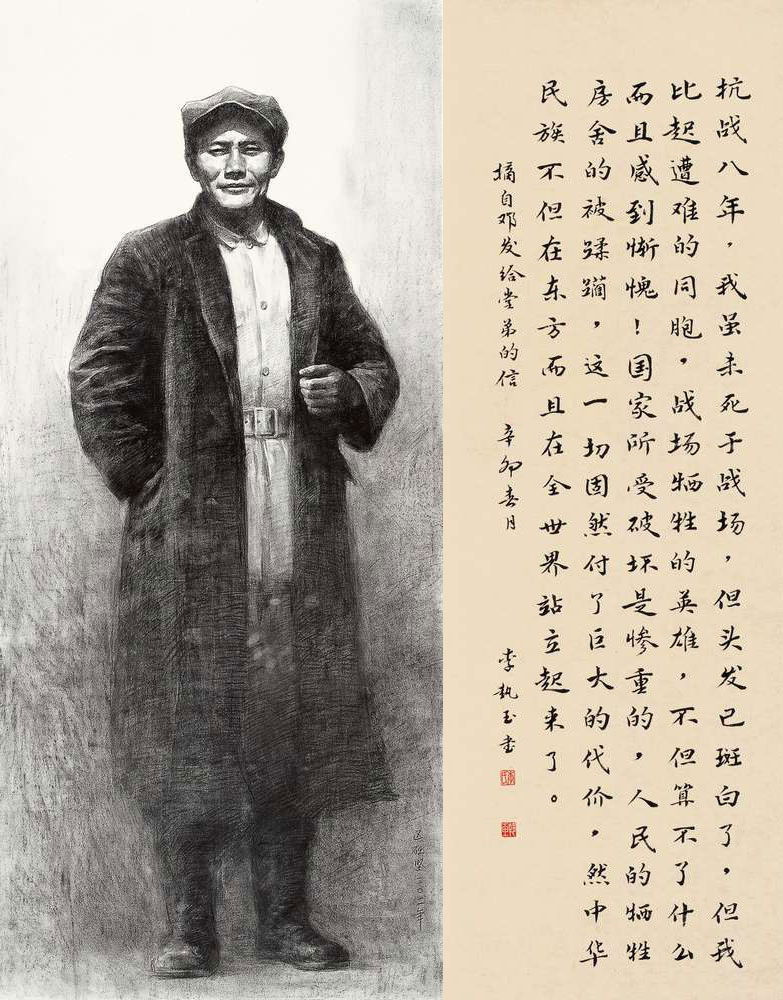 抗战八年，我虽未死于战场，但头发已斑白了，但我
比起遭难的同胞，战场牺牲的英雄，不但算不了什么
而且感到惭愧！国家所受破坏是惨重的，人民的牺牲
房舍的被蹂躏，这一切固然付了巨大的代价，然中华
民族不但在东方而且在全世界站立起来了。
摘自邓发给堂弟的信 辛卯春月 李执玉书